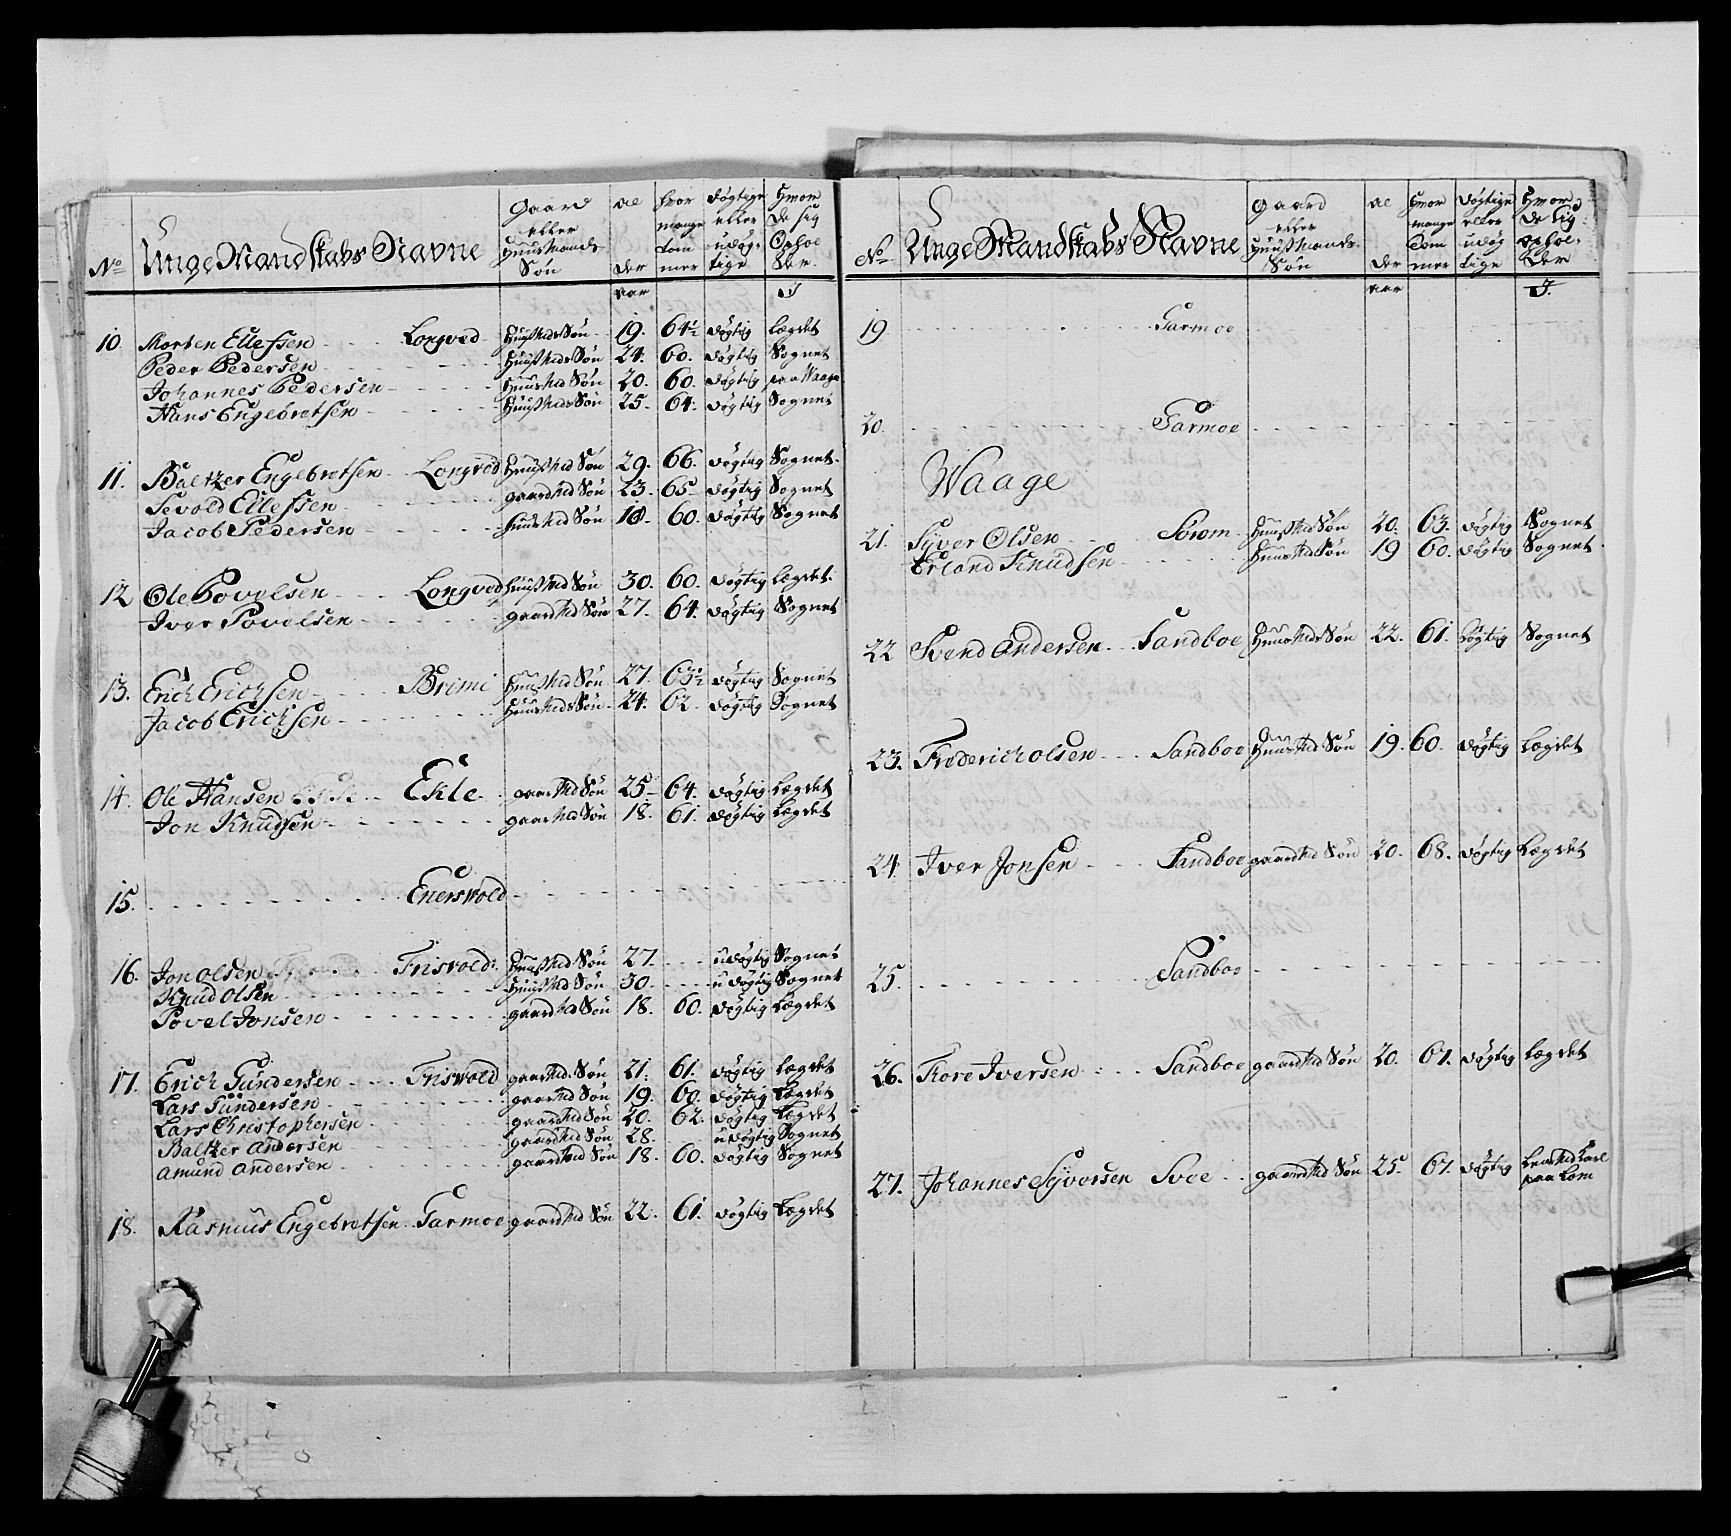 No Unge Mandskabs Navne Gaard eller Huus Mands Søn al der hvor mange tom mer døgtige eller udøg: tige Hvor de sig Ophol der
aar I
10. Morten Ellefsen Longved Huusmds Søn 19. 64½ døgtig Lægdet
Peder Pedersen Huusmds Søn 24. 60. døgtig Sognet
Johannes Pedersen Huusmds Søn 20. 60. døgtig paa Waage
Hans Engebretsen Huusmds Søn 25 64. døgtig Sognet
11. Baltzer Engebretsen Longved Huusmd Søn 29. 66. døgtig Sognet
Sevold Ellefsen gaardmd Søn 23. 65 døgtig Sognet
Jacob Pedersen Huusmd Søn 60. døgtig Sognet
12 Ole Povelsen Longved Huusmd Søn 30. 60. døgtig Lægdet.
Iver Povelsen gaardmd Søn 27. 64. døgtig Sognet
13. Erich Erichsen Brimi Huusmd Søn 27. 63½ døgtig Sognet
Jacob Erichsen Huusmds Søn 24. 62 døgtig Sognet
14. Ole Hansen Ekle gaardmd Søn 25 64. døgtig Lægdet
Jon Knudsen gaardmd Søn 18. 61. døgtig Lægdet
15. Enerswold
16. Jon Olsen Frisvold Huusmd Søn 27. udøgtig Sognet
Knud Olsen Huusmd Søn 30. udøgtig Sognet
Povel Jonsen gaardmd Søn 18. 60. døgtig Lægdet
17. Erich Gundersen Friswold gaardmd Søn 21. 61. døgtig Lægdet
Lars Gündersen gaardmd Søn 19. 60. døgtig Lægdet
Lars Christophersen gaardmd Søn 20. 62. døgtig Lægdet
Baltzer Andersen gaardmd Søn 28. udøgtig Sognet
Amund Andersen gaardmd Søn 18. 60. døgtig Sognet
18. Rasmus Engebretsen Garmoe gaardmd Søn 22. 61. døgtig Lægdet
No Unge Mandskabs Navne gaard eller Huus Mands Søn al der hvor mange tom mer døgtige eller udøg tige Hvor de sig ophol: der
aar I.
19. Garmoe
20. Garmoe
Waage
21. Syver Olsen Sörom Huusmd Søn 20. 63. døgtig Sognet
Erland Knudsen Huusmd Søn 19 60. døgtig Sognet
22 Svend Andersen Sandboe Huusmds Søn 22. 61. døgtig Sognet
23. Frederich Olsen Sandboe Huusmd Søn 19. 60. døgtig Lægdet
24. Iver Jonsen Sandboe gaardmd Søn 20. 68. døgtig Lægdet
25. Sandboe
26. Tore Iversen Sandboe gaardmd Søn 20. 67. døgtig Lægdet
27. Johannes Syversen Svee gaardmd Søn 25. 67. døgtig paa Lom